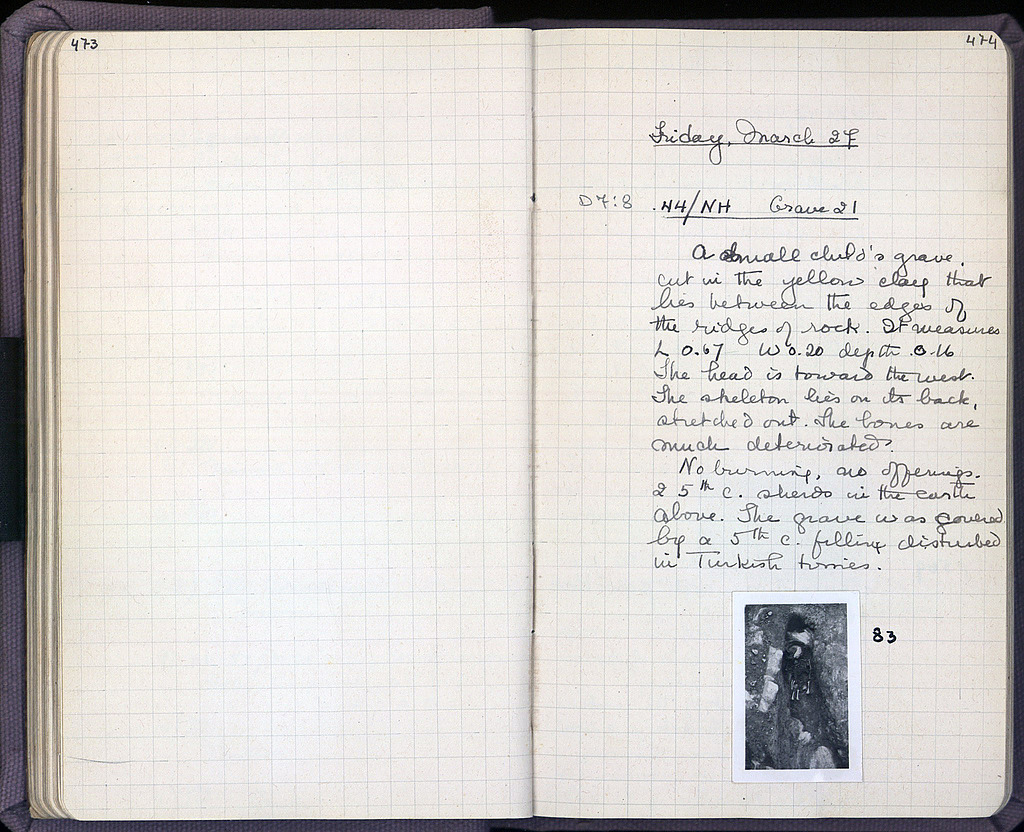 473
474
Friday, March 27
D7:8 N4/NH Grave 21
A small child's grave,
cut in the yellow clay that
lies between the edges of
the ridges of rock. It measures
L 0.67 W 0.20 depth 0.16
The head is toward the west.
The skeleton lies on its back,
stretched out. The bones are
much deteriorated.
No burning, no offerings.
2 5th c. sherds in the earth
above. The grave was covered
by a 5th c. filling disturbed
in Turkish times.
83